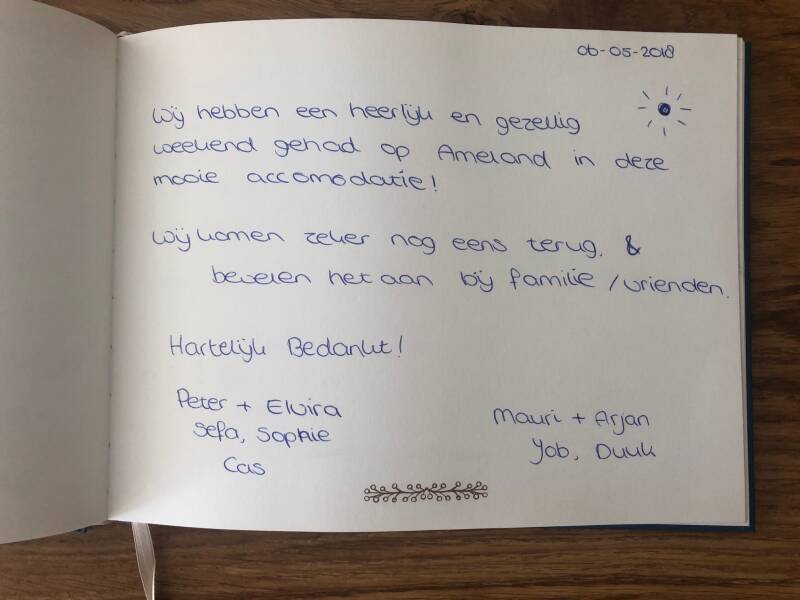 06-05-2018
Wij hebben een heerlijk en gezellig
weekend gehad op Ameland in deze
mooie accomodatie!
Wij komen zeker nog eens terug. &
bevelen het aan bij familie / vrienden.
Hartelijk Bedankt!
Peter + Elvira
Sefa, Sophie
Cas
Mauri + Arjan
Yob, Duuk